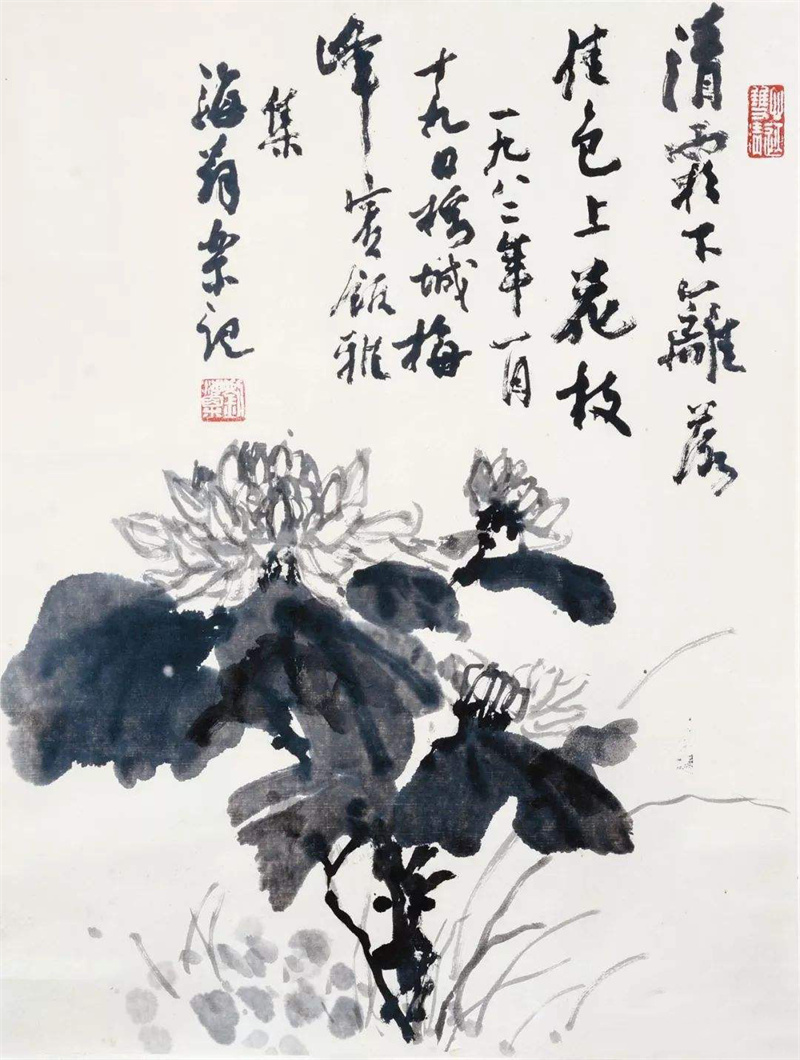 清霜下籬落
佳色上花枝
一九八二年一月
十九日榕城梅
峰賓館雅
集
海翁粟記